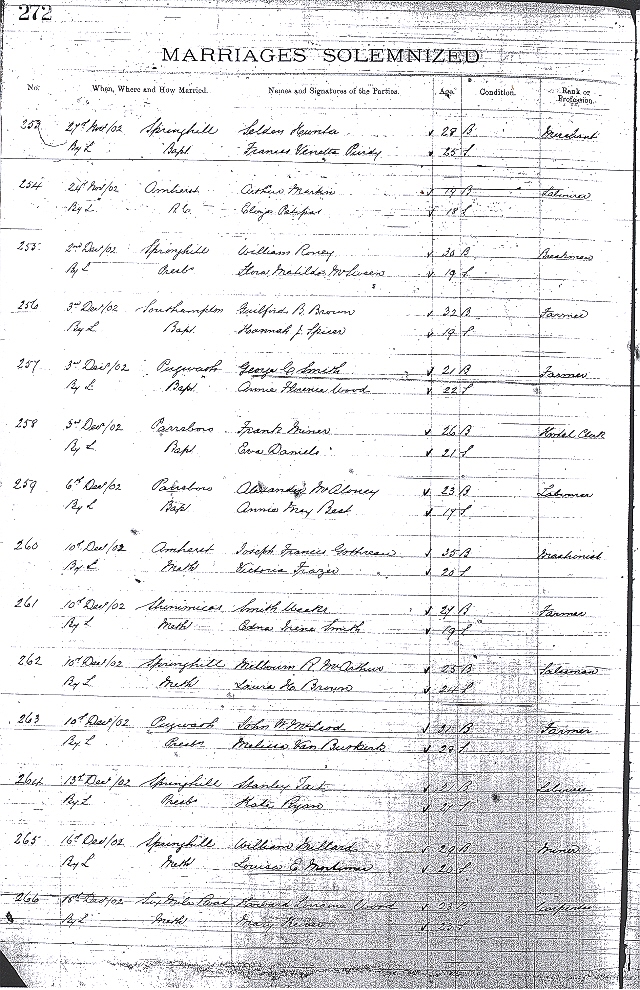 272
MARRIAGES SOLEMNIZED
No. When, Where and How Married. Names and Signatures of the Parties. Age. Condition. Rank or Profession.
253 27th Nov/02 Springhill Selden Hunter 28 B Merchant
By L Bapt Frances Venetta Purdy 25 S
254 24th Nov/02 Amherst Arthur Martin 19 B Labourer
By L R.C. 18 S
255 2nd Dec/02 Springhill William Roney 30 B
By L Presb Flora Matilda McQueen 19 S
256 3rd Dec/02 Southampton Guilford B. Brown 32 B Farmer
By L Bapt Hannah J. Spicer 19 S
257 3rd Dec/02 Pugwash George C. Smith 21 B Farmer
By L Bapt Annie Florence Wood 22 S
258 3rd Dec/02 Parrsboro Frank Miner 26 B Hotel Clerk
By L Bapt Eva Daniels 21 S
259 6th Dec/02 Parrsboro Alexander McAloney 23 B Labourer
By L Bapt Annie May Best S
260 10th Dec/02 Amherst Joseph Francis 35 B Machinist
By L Meth Victoria Frazer 20 S
261 10th Dec/02 Shinimicas Smith Weeks B Farmer
By L Meth Edna Irene Smith 19 S
262 10th Dec/02 Springhill Melbourn R. McArthur 25 B Salesman
By L Meth Louisa H. Brown 24 S
263 10th Dec/02 Pugwash John W. McLeod B Farmer
By L Presb Melissa Van Buskirk S
264 13th Dec/02 Springhill Stanley Labourer
By L Presb Kate Ryan 21 S
265 16th Dec/02 Springhill William Millard B Miner
By L Meth Louisa E. Mortimer 20 S
266 Dec/02 Six Mile Road Wood B Carpenter
By L Meth Mary